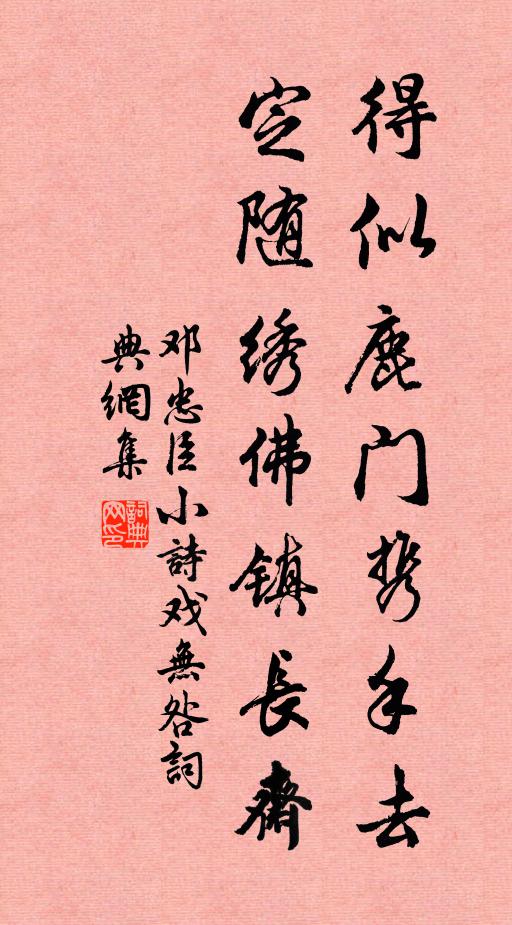 得似鹿门携手去
定随绣佛镇長齋
邓忠臣小詩戏無咎詞
典網集
詞典網印